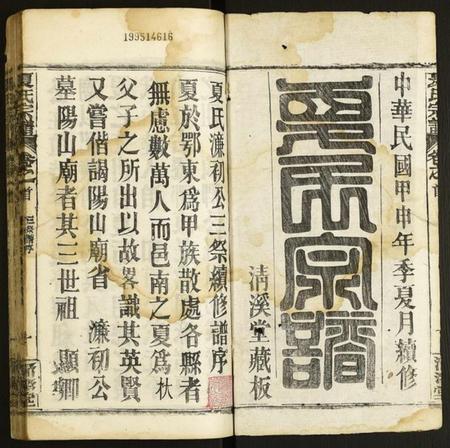 中華民國甲申年季夏月續修
夏氏宗譜
清溪堂藏板
夏氏宗譜
卷之首
199514616
夏氏濂初公三祭續修譜序
夏於鄂東為甲族散處各縣者
無慮數萬人而邑南之夏為杕
父子之所出以故畧識其英賢
又嘗偕謁陽山廟省 濂初公
墓陽山廟者其三世祖 顯卿